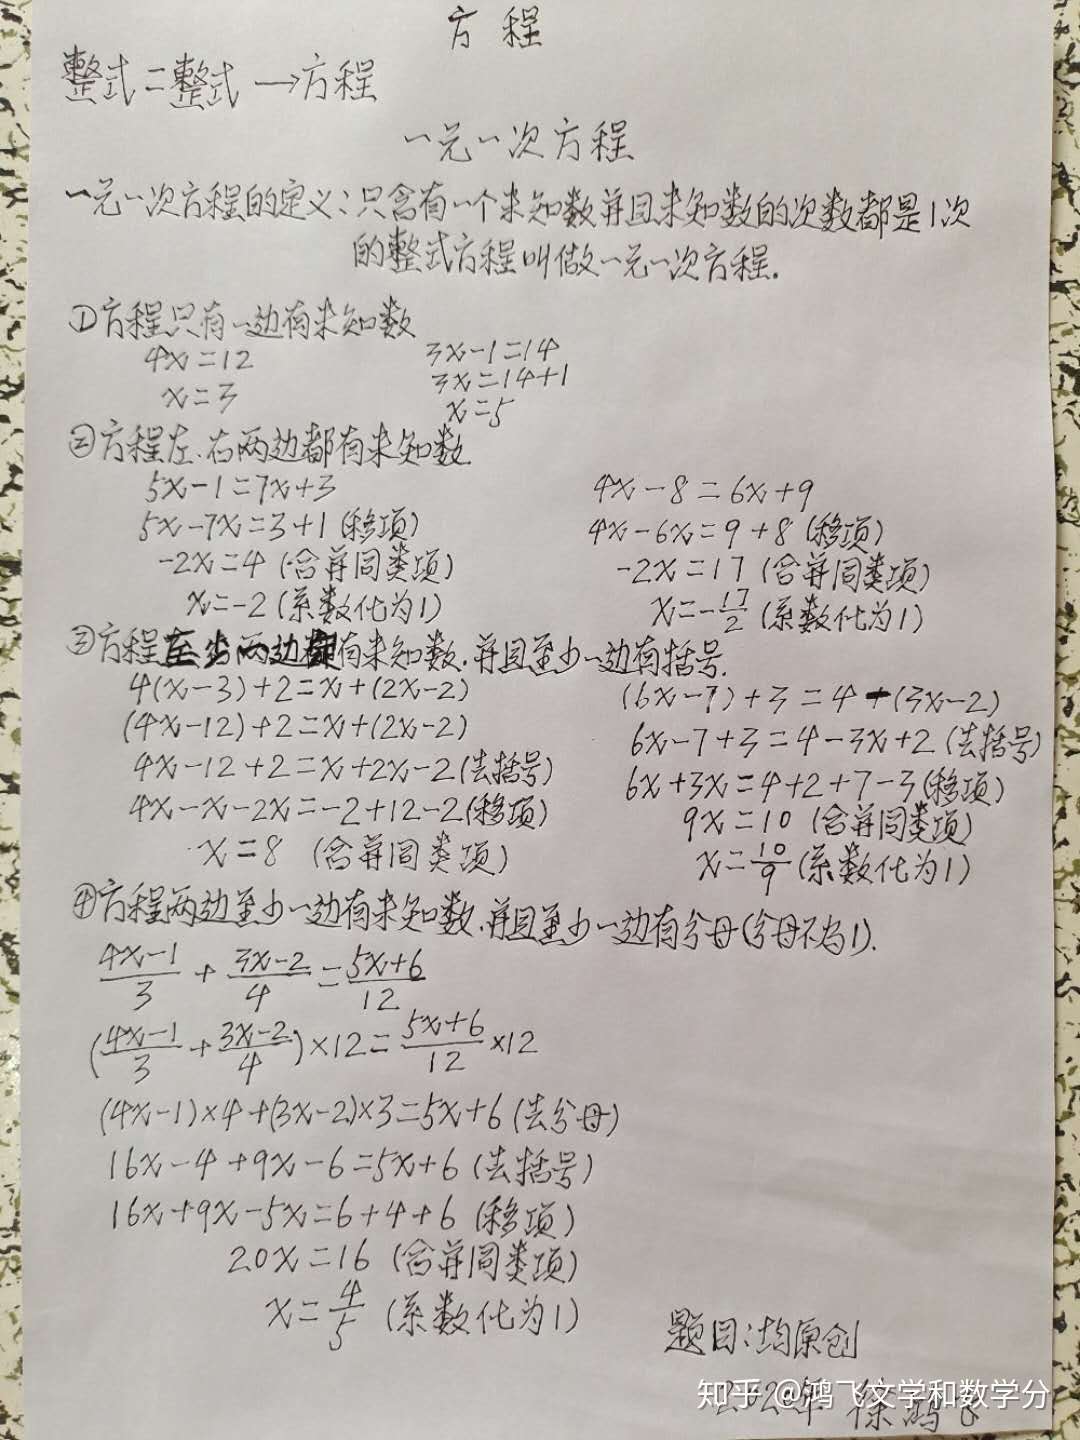 方程
整式=整式→方程
一元一次方程
一元一次方程的定义:只含有一个未知数并且未知数的次数都是1次
的整式方程叫做一元一次方程.
①方程只有一边有未知数
4x=12
x=3
3x-1=14
3x=14+1
x=5
②方程左、右两边都有未知数
5x-1=7x+3
5x-7x=3+1(移项)
-2x=4(合并同类项)
x=-2(系数化为1)
4x-8=6x+9
4x-6x=9+8(移项)
-2x=17(合并同类项)
x=-17/2(系数化为1)
③方程两边有未知数,并且至少一边有括号.
4(x-3)+2=x+(2x-2)
(4x-12)+2=x+(2x-2)
4x-12+2=x+2x-2(去括号)
4x-x-2x=-2+12-2(移项)
x=8(合并同类项)
(6x-7)+3=4-(3x-2)
6x-7+3=4-3x+2(去括号)
6x+3x=4+2+7-3(移项)
9x=10(合并同类项)
x=10/9(系数化为1)
④方程两边至少一边有未知数,并且至少一边有分母(分母不为1).
(4x-1)/3+(3x-2)/4=(5x+6)/12
((4x-1)/3+(3x-2)/4)×12=(5x+6)/12×12
(4x-1)×4+(3x-2)×3=5x+6(去分母)
16x-4+9x-6=5x+6(去括号)
16x+9x-5x=6+4+6(移项)
20x=16(合并同类项)
x=4/5(系数化为1)
题目:均原创
知乎 @鸿飞文学和数学分